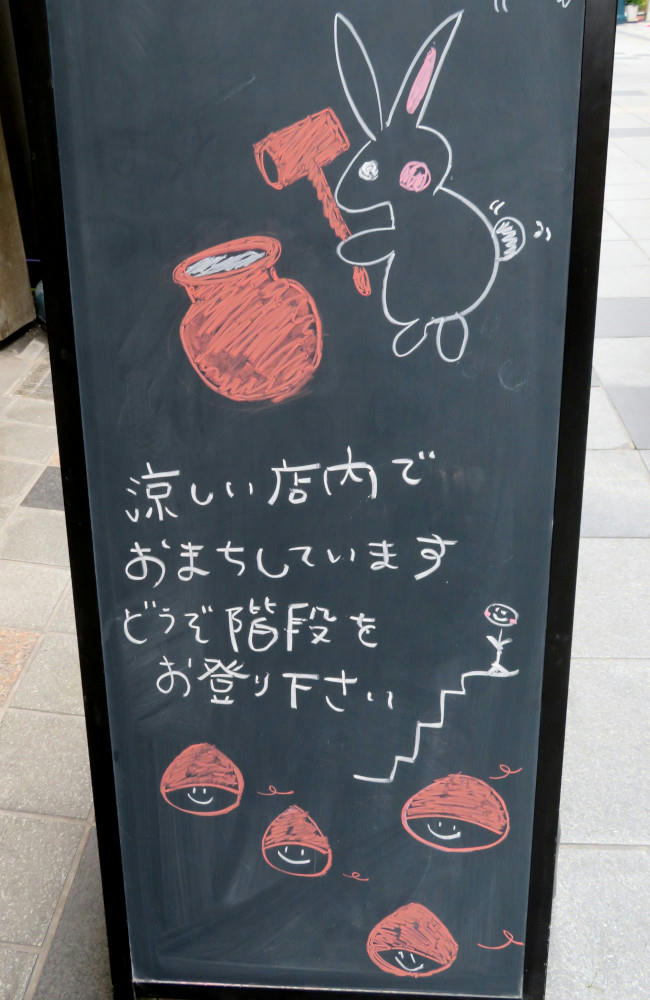 涼しい店内で
おまちしています
どうぞ階段を
お登り下さい